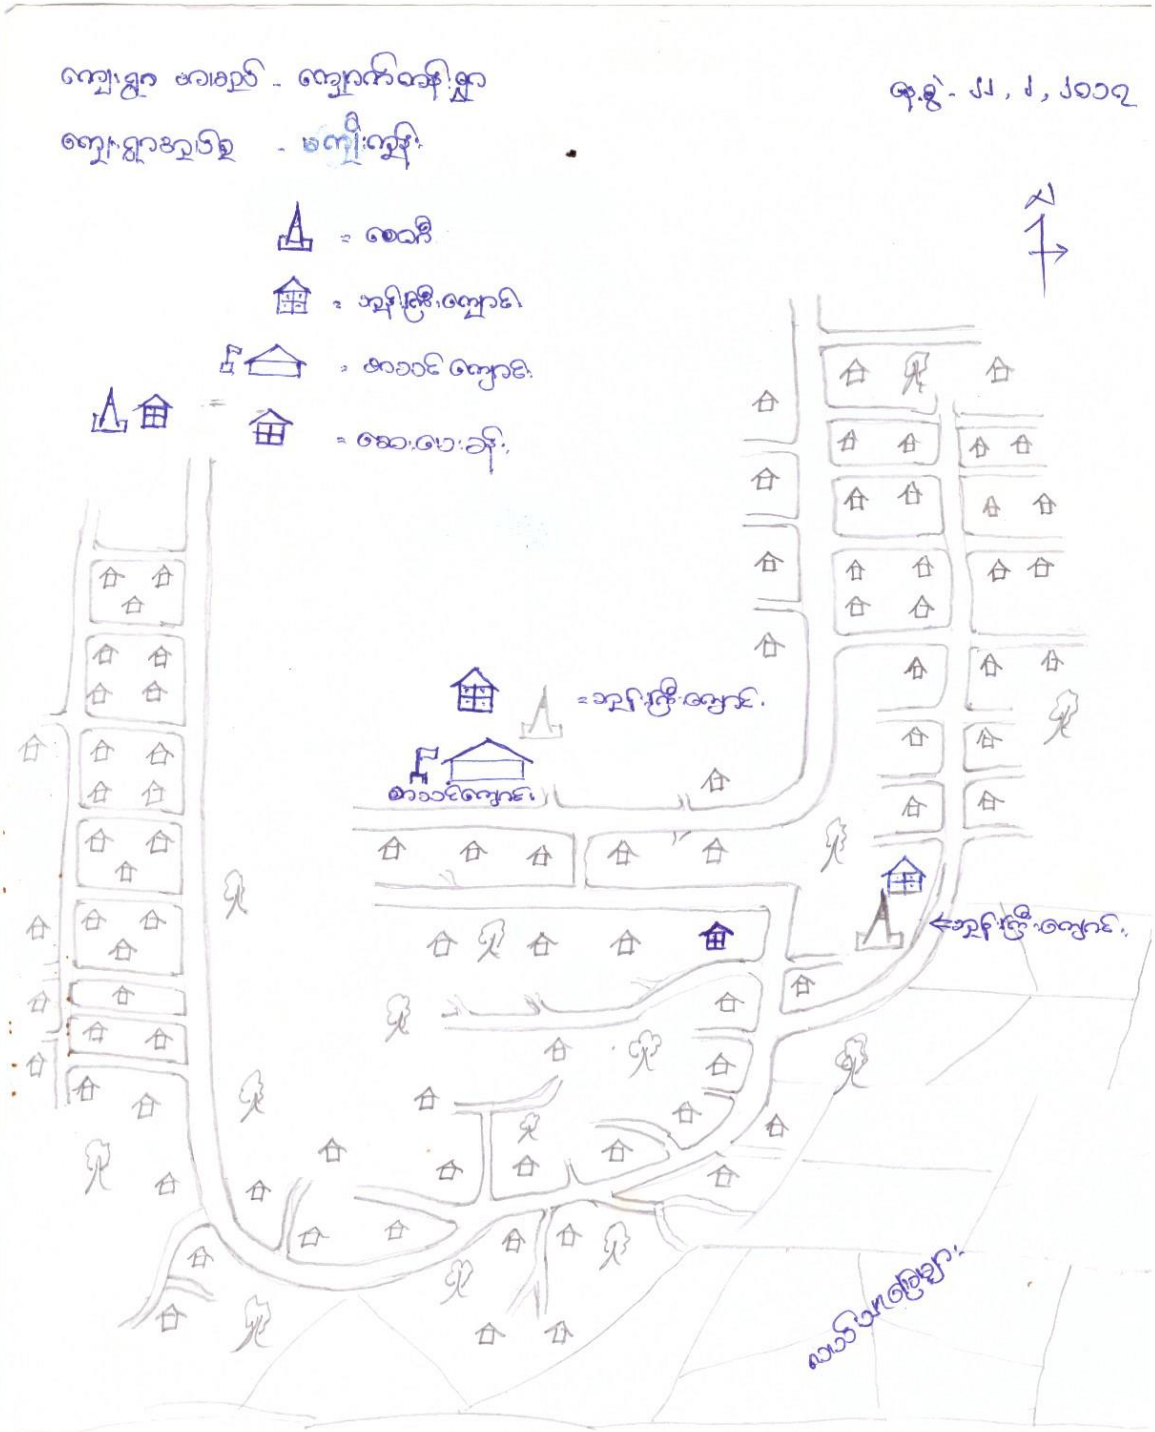 ကျေးရွာ အမည် - ကျောက်တန်းရွာ
ကျေးရွာအုပ်စု - မကျီးကွန်း
နေ့စွဲ - ၂၂, ၂, ၂၀၁၇
= စေတီ
= ဘုန်းကြီးကျောင်း
= စာသင်ကျောင်း
= ဆေးပေးခန်း
= ဘုန်းကြီးကျောင်း
စာသင်ကျောင်း
ဘုန်းကြီးကျောင်း